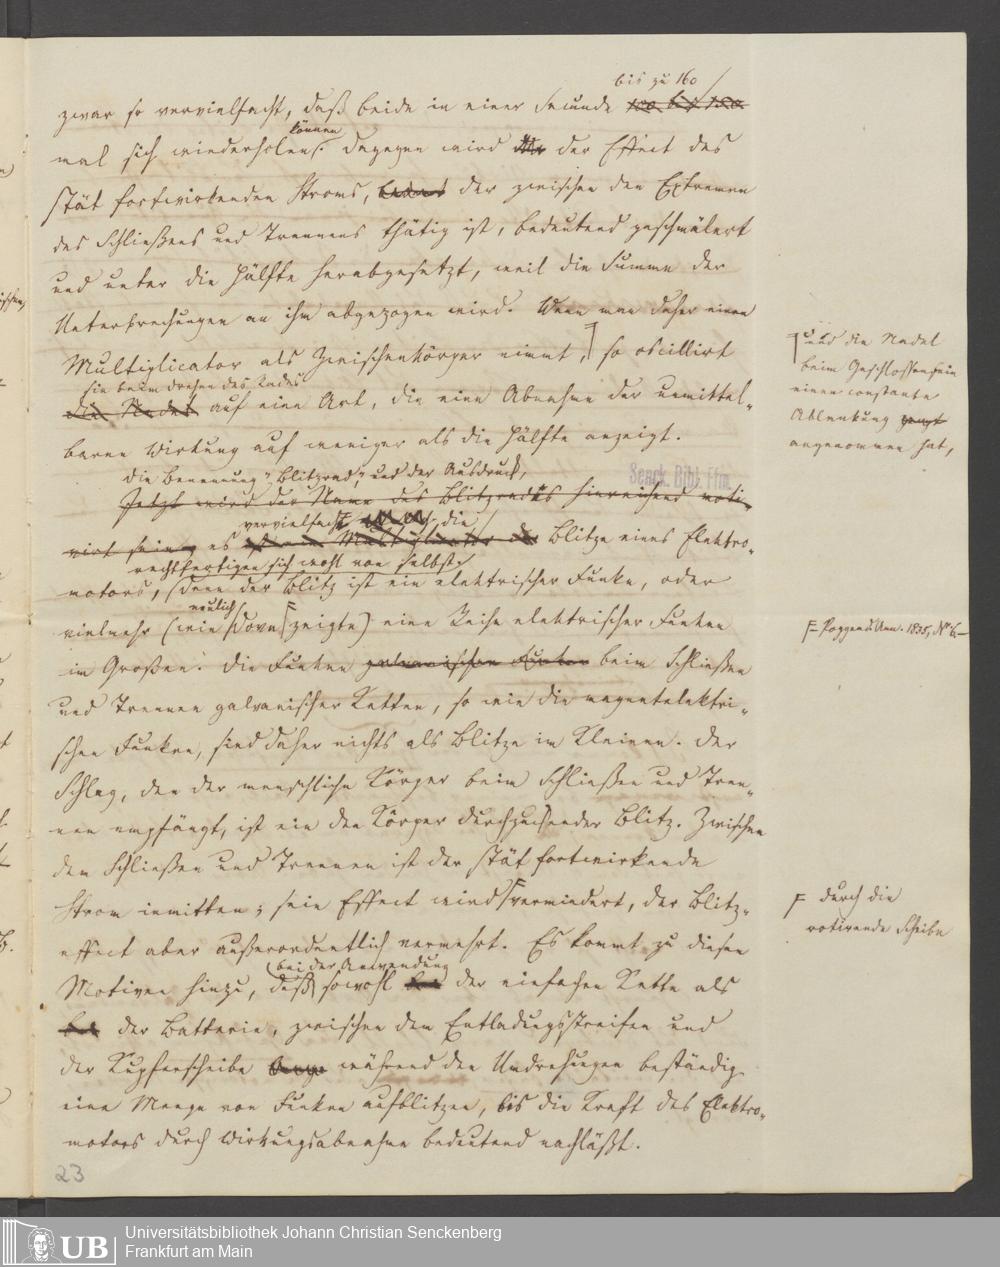 bis zu 160
zwar so vervielfacht, daß beide in einer Secunde 100 bis 150
können
mal sich wiederholen. Dagegen wird der Effect des
stät fortwirkenden Stroms, der zwischen den Extremen
des Schließens und Trennens thätig ist, bedeutend geschmälert
und unter die Hälfte herabgesetzt, weil die Summe der
Unterbrechungen an ihm abgezogen wird. Wenn man daher einen
Multiplicator als Zwischenkörper nimmt, so oscillirt
und die Nadel
beim Geschlossensein
einen constante
Ablenkung
angenommen hat,
sie beim Drehen des Rades
die Nadel auf eine Art, die eine Abnahme der unmittel-
baren Wirkung auf weniger als die Hälfte anzeigt.
Senck. Bibl. Ffm.
die Benennung "Blitzrad", und der Ausdruck,
Jetzt wird der Name des Blitzrades hinreichend moti-
vervielfacht die
virt sein, es Blitze eines Elektro-
rechtfertigen sich wohl von selbst;
motors, denn der Blitz ist ein elektrischer Funke, oder
neulich
vielmehr (wie Dove zeigte) eine Reihe elektrischer Funken
Poggend. Ann. 1835, No
im Großen. Die Funken galvanischen Funken beim Schließen
und Trennen galvanischer Ketten, so wie die magnetelektri-
schen Funken, sind daher nichts als Blitze im Kleinen. Der
Schlag, den der menschliche Körper beim Schließen und Tren-
nen empfängt, ist ein den Körper durchzuckender Blitz. Zwischen
dem Schließen und Trennen ist der stät fortwirkende
Strom inmitten; sein Effect wird vermindert, der Blitz-
durch die
rotirende Scheibe
effect aber außerordentlich vermehrt. Es kommt zu diesen
bei der Anwendung
Motiven hinzu, daß sowohl der einfachen Kette als
bei der Batterie, zwischen dem Entladungsstreifen und
der Kupferscheibe während den Umdrehungen beständig
eine Menge von Funken aufblitzen, bis die Kraft des Elektro-
motors durch Wirkungsabnahme bedeutend nachläßt.
23
UB
Universitätsbibliothek Johann Christian Senckenberg
Frankfurt am Main